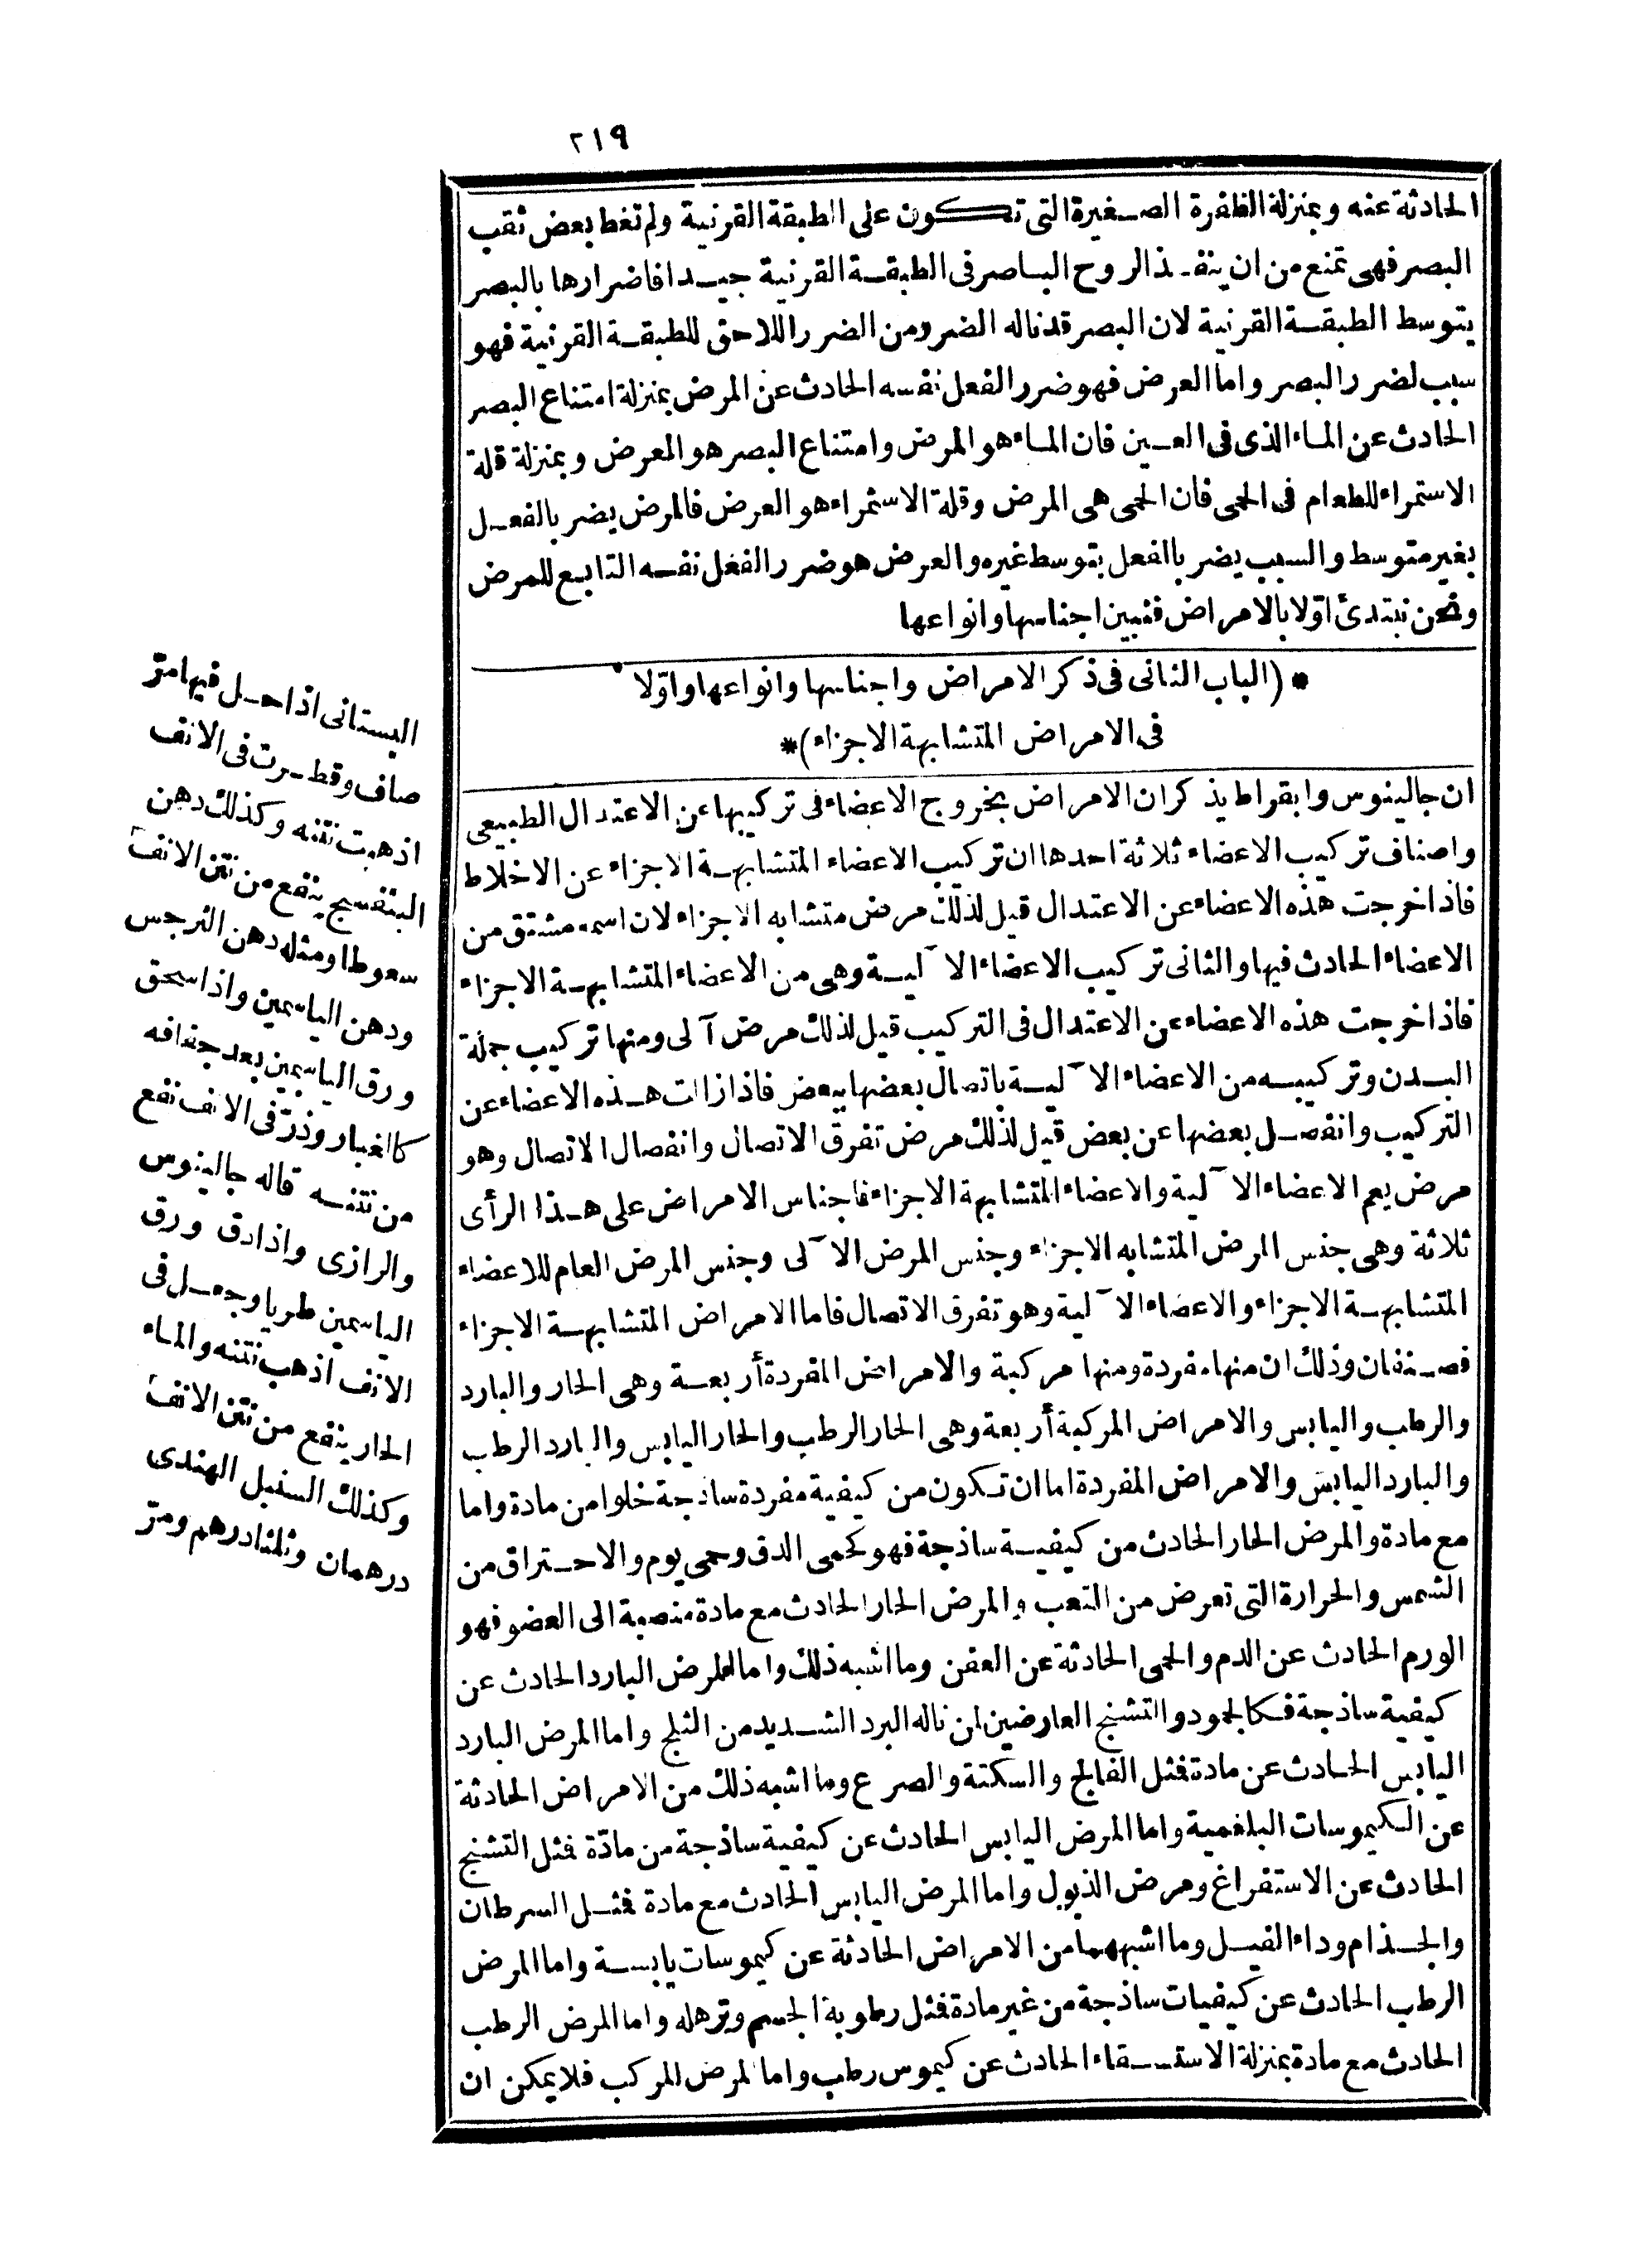 ٢١٩
الحادثة عنه وبمنزلة الظفرة الصغيرة التى تكون على الطبقة القرنية ولم تغط بعض ثقب
البصر فهى تمنع من ان ينفذ الروح الباصر فى الطبقة القرنية جيدا فاضرارها بالبصر
يتوسط الطبقة القرنية لان البصر قد ناله الضرر من الضرر اللاحق للطبقة القرنية فهو
سبب لضرر البصر واما العرض فهو ضرر الفعل نفسه الحادث عن المرض بمنزلة امتناع البصر
الحادث عن الماء الذى فى العين فان الماء هو المرض وامتناع البصر هو المعرض وبمنزلة قلة
الاستمراء للطعام فى الحمى فان الحمى هى المرض وقلة الاستمراء هو العرض فالمرض يضر بالفعل
بغير متوسط والسبب يضر بالفعل بتوسط غيره والعرض هو ضرر الفعل نفسه التابع للمرض
ونحن نبتدئ اوّلا بالامراض فنبين اجناسها وانواعها
* (الباب الثانى فى ذكر الامراض واجناسها وانواعها واوّلا
فى الامراض المتشابهة الاجزاء) *
ان جالينوس وابقراط يذكر ان الامراض بخروج الاعضاء فى تركيبها عن الاعتدال الطبيعى
واصناف تركيب الاعضاء ثلاثة احدها ان تركيب الاعضاء المتشابهة الاجزاء عن الاخلاط
فاذا خرجت هذه الاعضاء عن الاعتدال قيل لذلك مرض متشابه الاجزاء لان اسمه مشتق من
الاعضاء الحادث فيها والثانى تركيب الاعضاء الآلية وهى من الاعضاء المتشابهة الاجزاء
فاذا خرجت هذه الاعضاء عن الاعتدال فى التركيب قيل لذلك مرض آلى ومنها تركيب جملة
البدن وتركيبه من الاعضاء الآلية باتصال بعضها ببعض فاذا زالت هذه الاعضاء عن
التركيب وانفصل بعضها عن بعض قيل لذلك مرض تفرق الاتصال وانفصال الاتصال وهو
مرض يعم الاعضاء الآلية والاعضاء المتشابهة الاجزاء فاجناس الامراض على هذا الرأى
ثلاثة وهى جنس المرض المتشابه الاجزاء وجنس المرض الآلى وجنس المرض العام للاعضاء
المتشابهة الاجزاء والاعضاء الآلية وهو تفرق الاتصال فاما الامراض المتشابهة الاجزاء
فصنفان وذلك ان منها مفردة ومنها مركبة والامراض المفردة أربعة وهى الحار والبارد
والرطب واليابس والامراض المركبة أربعة وهى الحار الرطب والحار اليابس والبارد الرطب
والبارد اليابس والامراض المفردة اما ان تكون من كيفية مفردة ساذجة خلوا من مادة واما
مع مادة والمرض الحار الحادث من كيفية ساذجة فهو كحمى الدق وحمى يوم والاحتراق من
الشمس والحرارة التى تعرض من التعب والمرض الحار الحادث مع مادة منصبة الى العضو فهو
الورم الحادث عن الدم والحمى الحادثة عن العفن وما اشبه ذلك واما المرض البارد الحادث عن
كيفية ساذجة فكالجمود والتشنج العارضين لمن ناله البرد الشديد من الثلج واما المرض البارد
اليابس الحادث عن مادة فمثل الفالج والسكتة والصرع وما اشبه ذلك من الامراض الحادثة
عن الكيموسات البلغمية واما المرض اليابس الحادث عن كيفية ساذجة من مادّة فمثل التشنج
الحادث عن الاستفراغ ومرض الذبول واما المرض اليابس الحادث مع مادة فمثل السرطان
والجذام وداء الفيل وما اشبههما من الامراض الحادثة عن كيموسات يابسة واما المرض
الرطب الحادث عن كيفيات ساذجة من غير مادة فمثل رطوبة الجسم وترهله واما المرض الرطب
الحادث مع مادة بمنزلة الاستسقاء الحادث عن كيموس رطب واما المرض المركب فلا يمكن ان
البستانى اذا حل فيها مرّ
صاف وقطرت فى الانف
اذهبت نتنه وكذلك دهن
البنفسج ينفع من نتن الانف
سعوطا ومثله دهن النرجس
ودهن الياسمين واذا سحق
ورق الياسمين بعد جفافه
كالغبار وذرّ فى الانف نفع
من نتنه قاله جالينوس
والرازى واذا دق ورق
الياسمين طريا وجعل فى
الانف اذهب نتنه والماء
الحار ينفع من نتن الانف
وكذلك السنبل الهندى
درهمان وثلثا درهم ومرّ